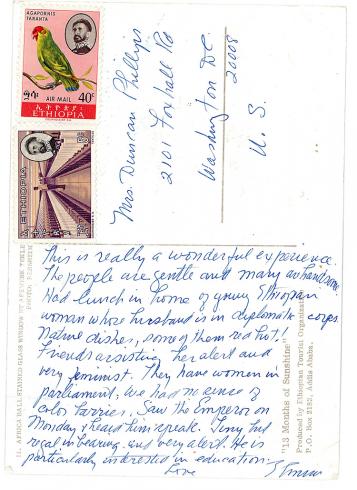 AGAPORNIS
TARANTA
AIR MAIL 40c
ETHIOPIA
ETHIOPIA
Mrs. Duncan Phillips
2101 Foxhall Rd
Washington DC
20008
U. S.
This is really a wonderful experience.
The people are gentle and many are handsome
Had lunch in home of young Ethiopian
woman whose husband is in diplomatic corps.
Native dishes, some of them red hot!
Friends assisting her alert and
very feminist. They have women in
parliament, we had no sense of
color barriers. Saw the Emperor on
Monday & heard him speak. Tiny but
regal in bearing and very alert. He is
particularly interested in education.
Love
11. AFRICA HALL STAINED GLASS WINDOW BY AFEWERK TEKLE
"13 Months of Sunshine"
Produced by Ethiopian Tourist Organization
P.O. Box 2183, Addis Ababa.